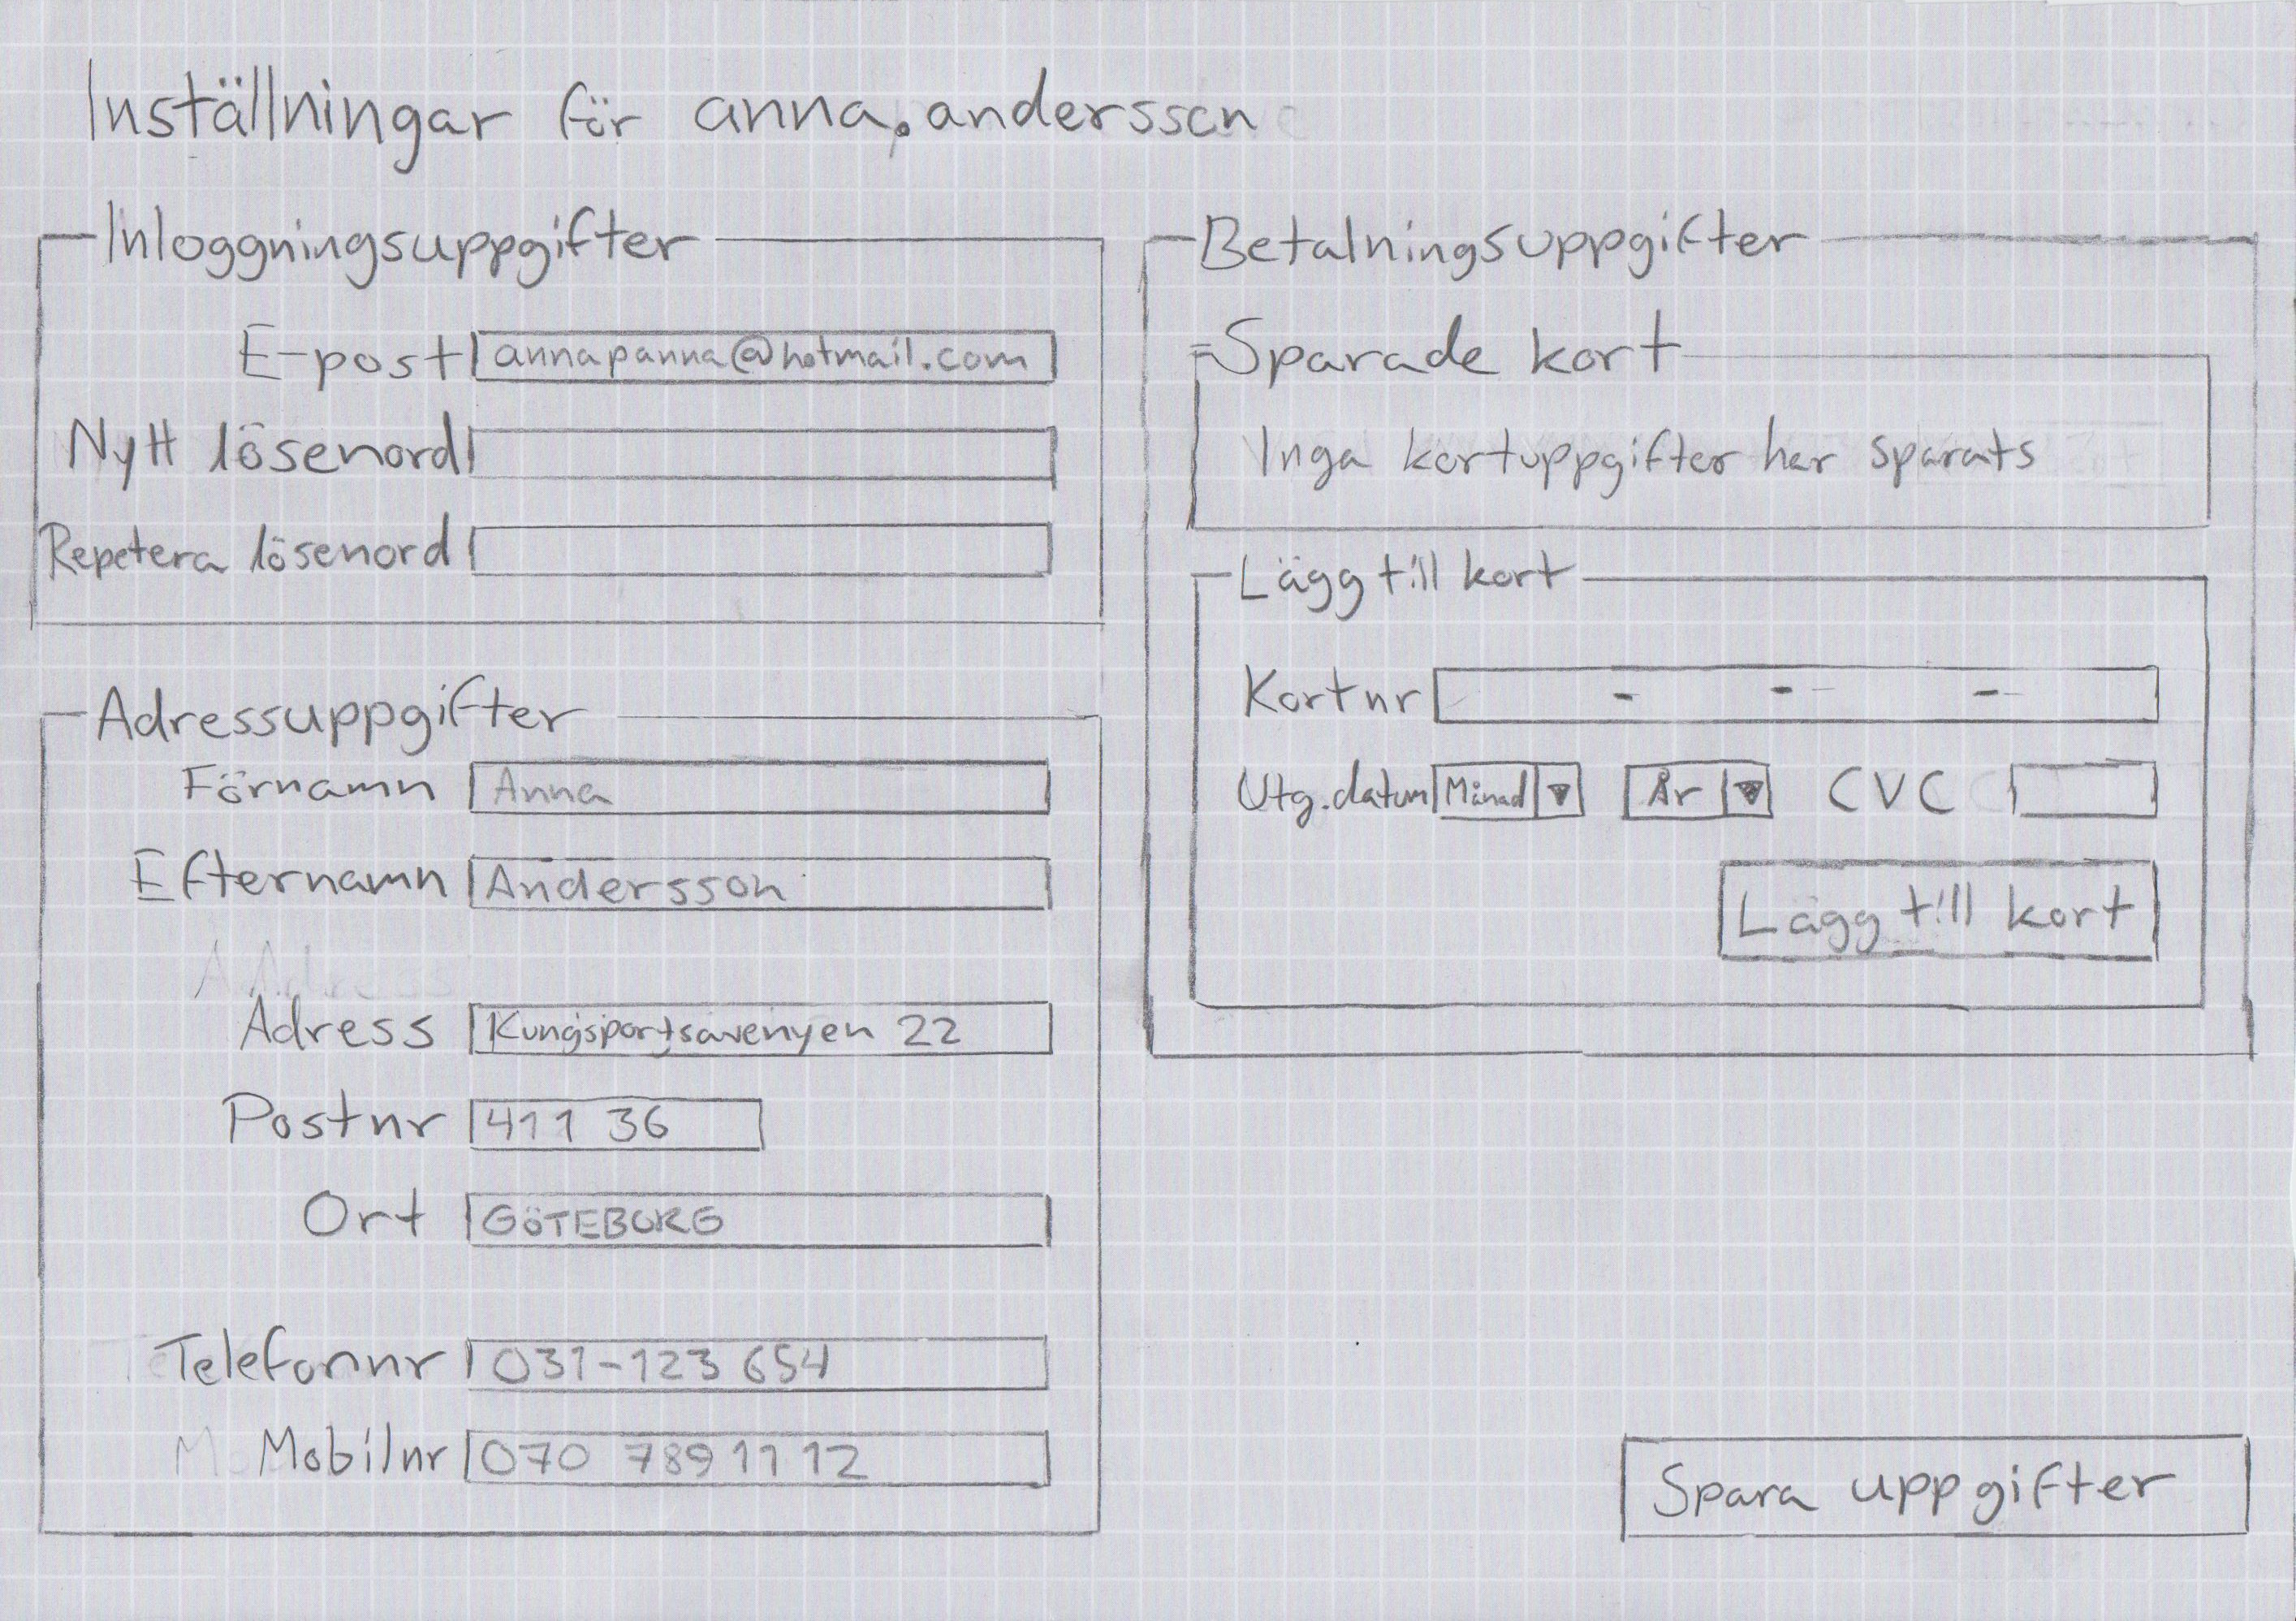 Inställningar för anna.andersson
Inloggningsuppgifter
E-post annapanna@hotmail.com
Nytt lösenord
Repetera lösenord
Adressuppgifter
Förnamn Anna
Efternamn Andersson
Adress Kungsportsavenyen 22
Postnr 411 36
Ort GÖTEBORG
Telefonnr 031-123 654
Mobilnr 070 789 11 12
Betalningsuppgifter
Sparade kort
Inga kortuppgifter har sparats
Lägg till kort
Kortnr - - -
Utg.datum Månad År CVC
Lägg till kort
Spara uppgifter